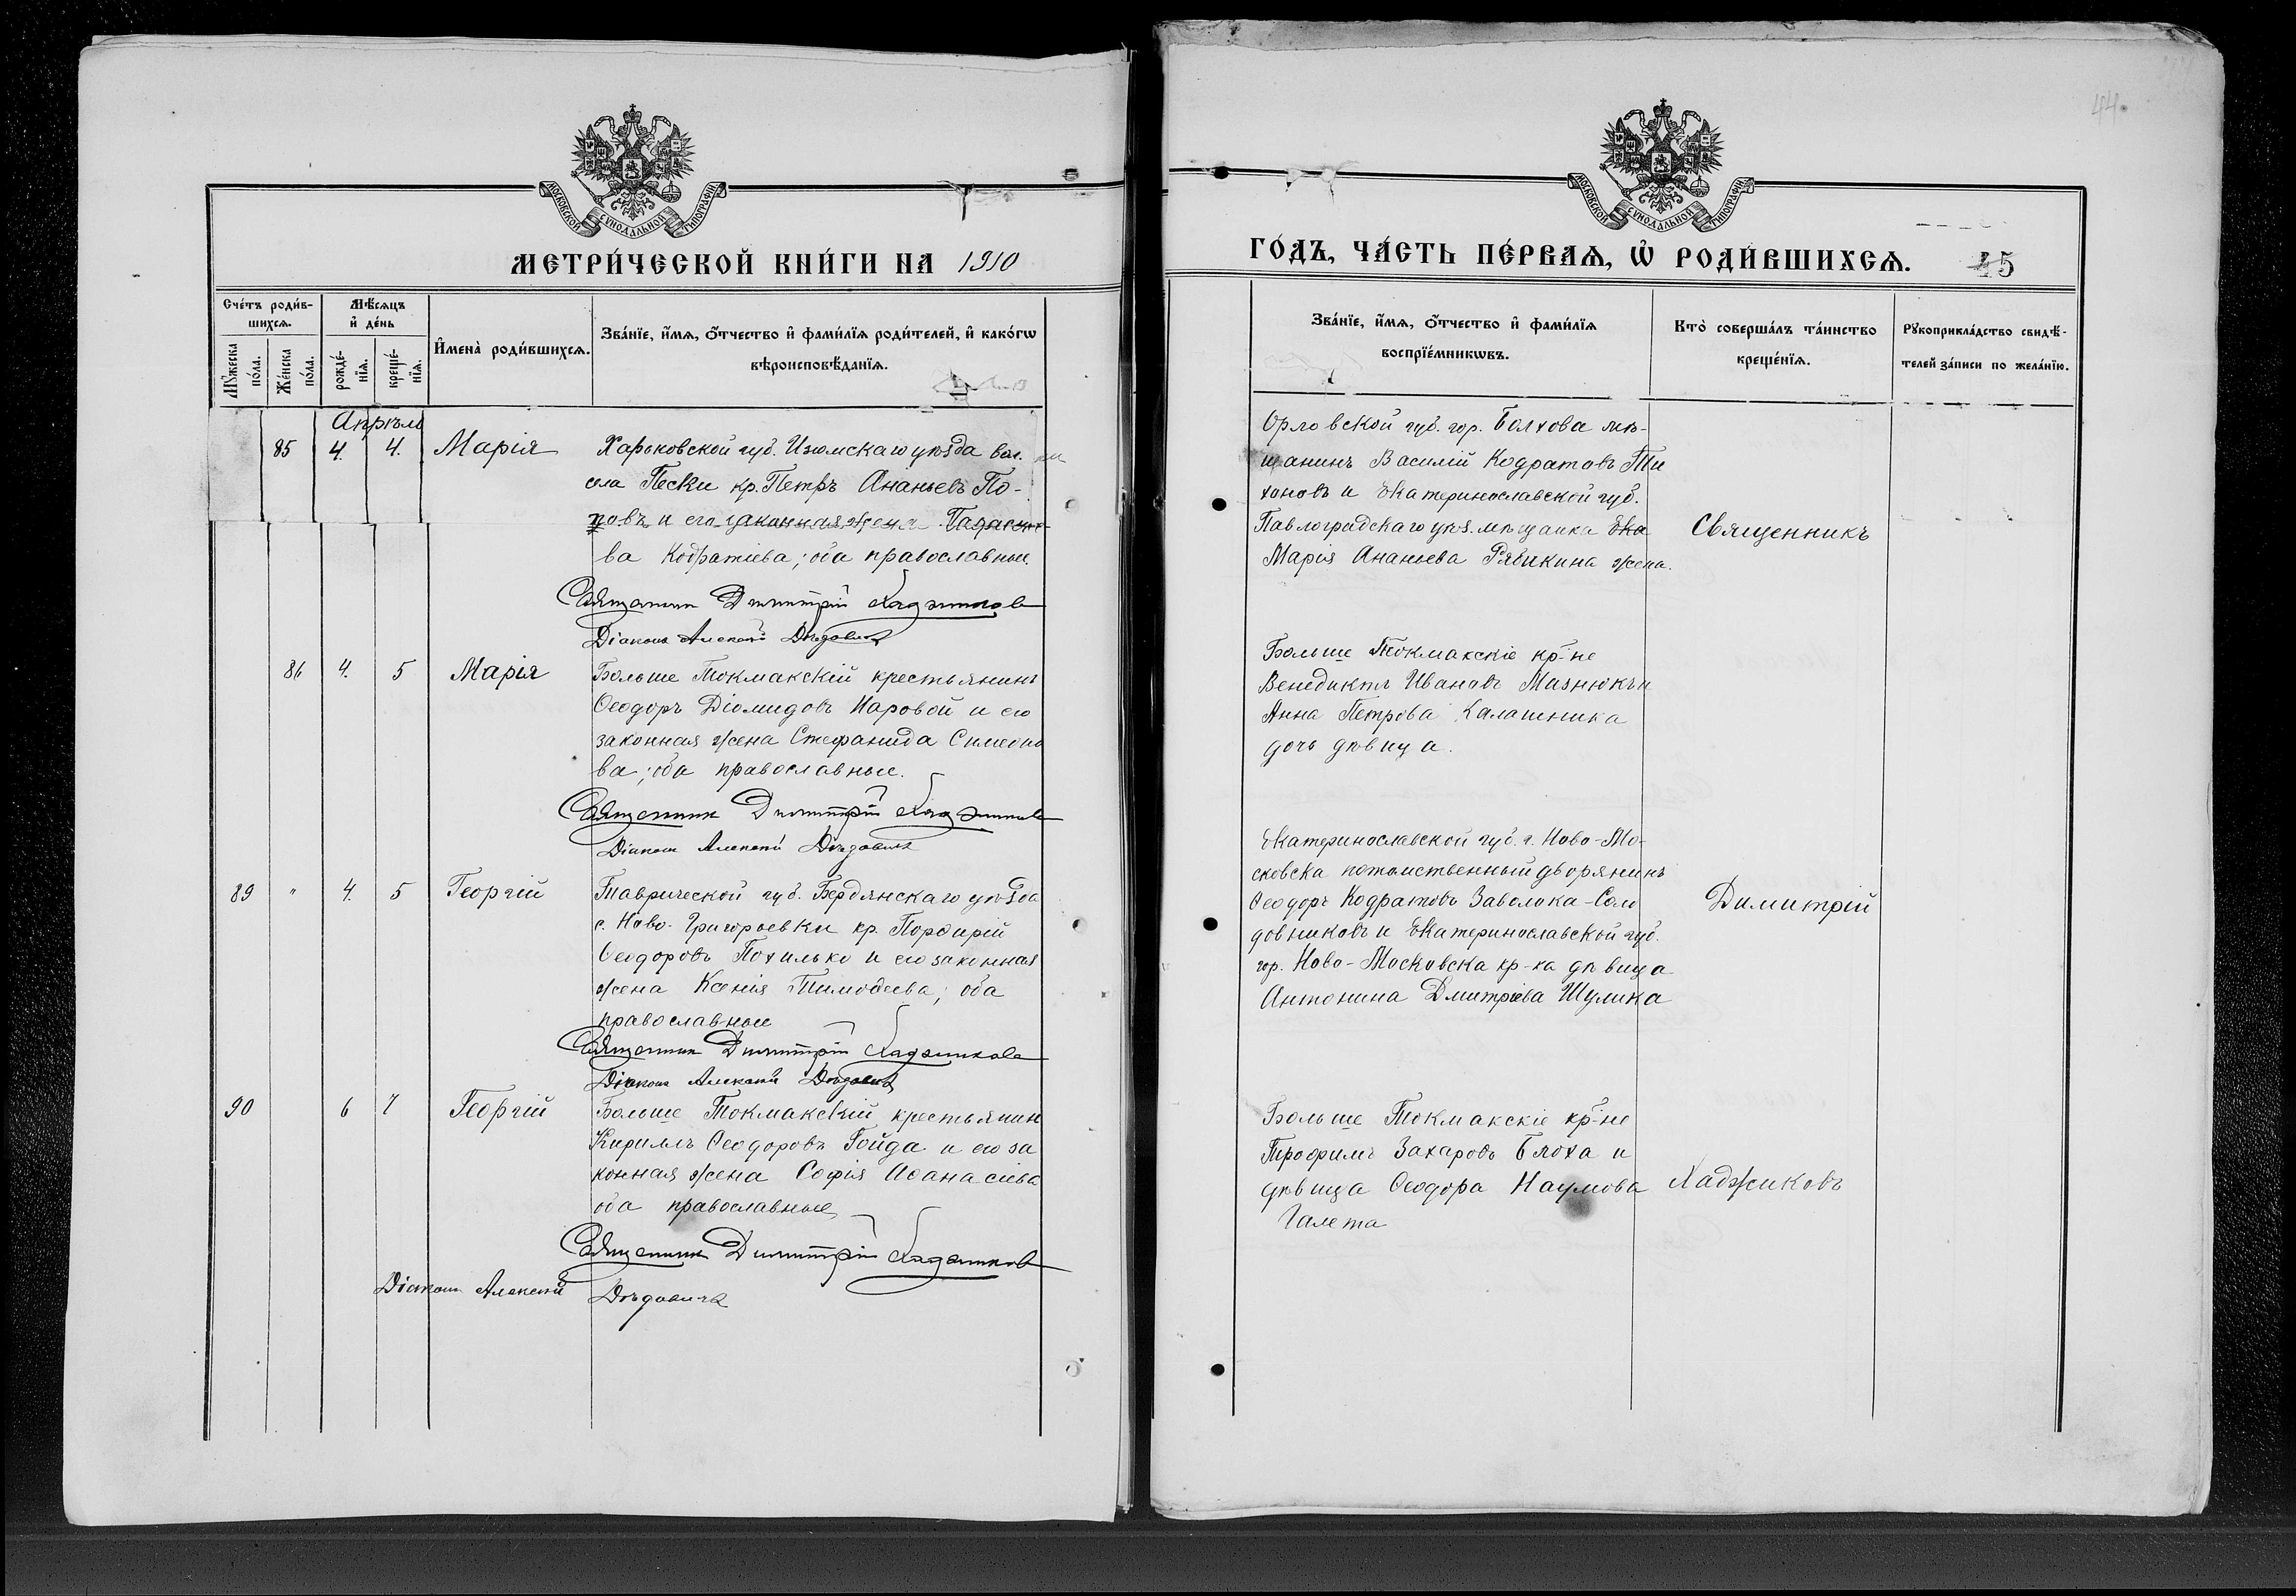 44
МОСКОВСКОЙ СУНОДАЛЬНОЙ ТИПОГРАФІИ
МЕТРИ́ЧЕСКОЙ КНИ́ГИ НА 1910
Сче́тъ роди́в-
шихся.
Мѣ́сяцъ
и҆ де́нь
И҆мена̀ роди́вшихся.
Зва́нїе, и҆́мя, ѻ҆́тчество и҆ фами́лїя роди́телей, и҆ како́гѡ
вѣроисповѣ́данїя.
Мꙋ́жеска
по́ла.
Же́нска
по́ла.
рожде́-
нїя.
креще́-
нїя.
Апрѣль
85 4. 4. Марія
Харьковской губ. Изюмскаго уѣзда вол.
села Пески кр. Петръ Ананьевъ По-
повъ и его законная жена Параске-
ва Кодратіева; оба православные.
Священникъ Димитрій Хаджиковъ
Діаконъ Алексій
86 4. 5 Марія
Больше Токмакскій крестьянинъ
Ѳеодоръ Діомидовъ Наровой и его
законная жена Стефанида Симеоно
ва; оба православные.
Священникъ Димитрій Хаджиковъ
Діаконъ Алексій
89 " 4. 5 Георгій
Таврической губ. Бердянскаго уѣзда
с. Ново-Григорьевки кр. Порфирій
Ѳеодоровъ Похилько и его законная
жена Ксенія Тимоѳеева; оба
православные
Священникъ Димитрій Хаджиковъ
Діаконъ Алексій
90 6 7 Георгій
Больше Токмакскій крестьянин
Кириллъ Ѳеодоровъ Гойда и его за
конная жена Софія Аѳанасіева
оба православные
Священникъ Димитрій Хаджиковъ
Діаконъ Алексій
МОСКОВСКОЙ СУНОДАЛЬНОЙ ТИПОГРАФІИ
ГО́ДЪ, ЧА́СТЬ ПЕ́РВАЯ, Ѡ҆ РОДИ́ВШИХСЯ. 45
Зва́нїе, и҆́мя, ѻ҆́тчество и҆ фами́лїя
воспрїе́мникѡвъ.
Кто̀ соверша́лъ та́инство
креще́нїя.
Рꙋкоприкла́дство свидѣ́-
телей за́писи по жела́нїю.
Орловской губ. гор. Болхова мѣ-
щанинъ Василій Кодратовъ Ти
хоновъ и Екатеринославской губ.
Павлоградскаго уѣз. мѣщанка Ека
Марія Ананьева Рябикина жена.
Больше Токмакскіе кр-не
Венедиктъ Ивановъ Мизнюкъ и
Анна Петрова Калашника
дочь дѣвица.
Екатеринославской губ. г. Ново-Мо-
сковска потомственный дворянинъ
Ѳеодоръ Кодратовъ Заволока-Соло
довниковъ и Екатеринославской губ.
гор. Ново-Московска кр-ка дѣвица
Антонина Дмитріева Шулика
Больше Токмакскіе кр-не
Трофимъ Захаровъ Блоха и
дѣвица Ѳеодора Наумова
Галета
Священникъ
Димитрій
Хаджиковъ